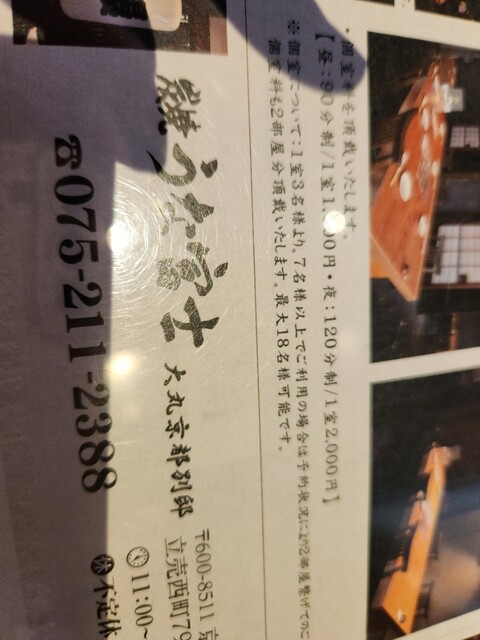 ・個室料を頂戴いたします。
【昼:90分制/1室1,000円・夜:120分制/1室2,000円】
※個室について:1室3名様より。7名様以上でご利用の場合は予約状況により2部屋繋げてのご
個室料も2部屋分頂戴いたします。最大18名様可能です。
炭焼 うな富士 大丸京都別邸
☎075-211-2388
〒600-8511 京
立売西町79
11:00~
休 不定休